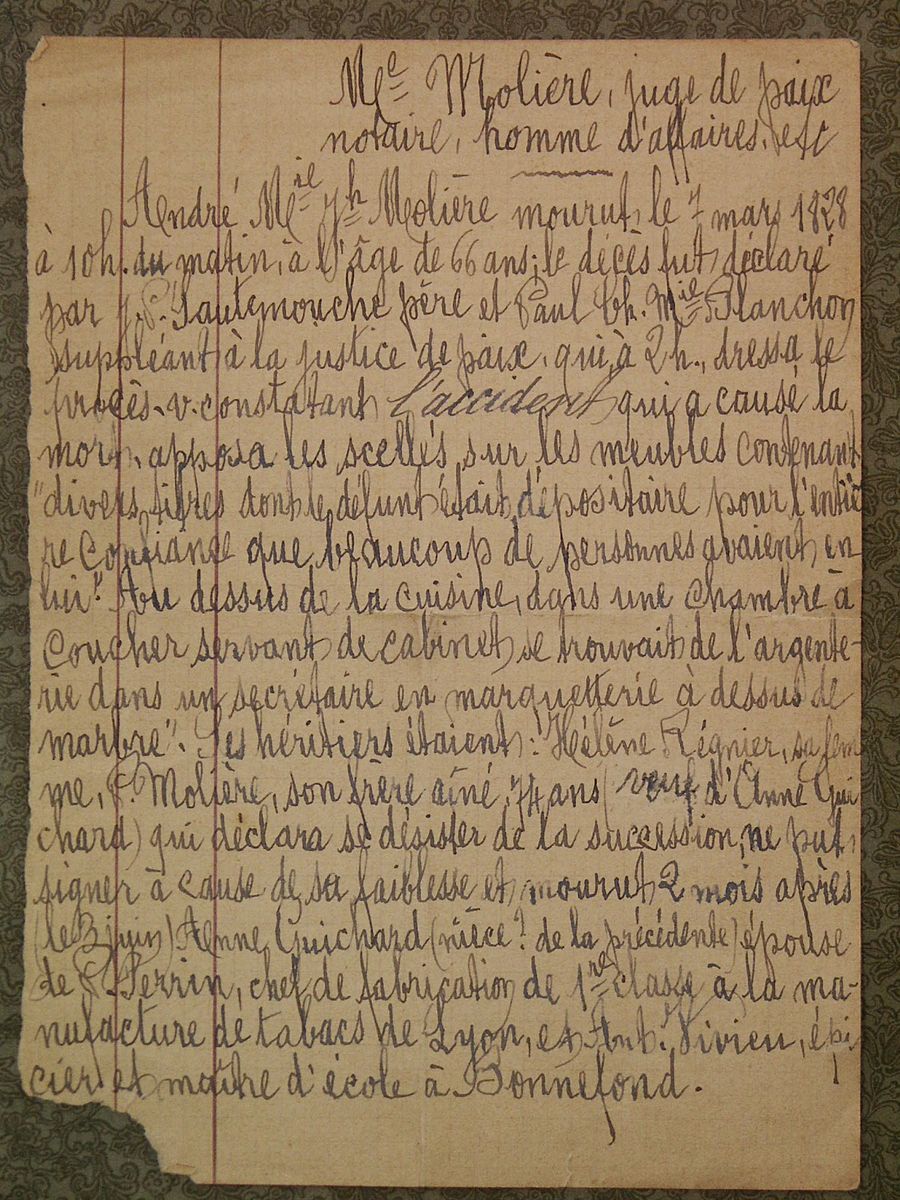 Me Molière, juge de paix
notaire, homme d'affaires, etc
André Mie Jh Molière mourut, le 7 mars 1828
à 10h. du matin, à l'âge de 66 ans; le décès fut déclaré
par J. P. Sautemouche père et Paul Ch. Mie Planchon
suppléant à la justice de paix, qui, à 2h., dressa le
procès-v. constatant l'accident qui a causé la
mort, apposa les scellés sur les meubles contenant
"divers titres dont le défunt était dépositaire pour l'entiè
re confiance que beaucoup de personnes avaient en
lui". Au dessus de la cuisine, dans une chambre à
coucher servant de cabinet, se trouvait de l'argente-
rie dans un secrétaire en marquetterie à dessus de
marbre". Ses héritiers étaient: Hélène Régnier, sa fem
me, P. Molière, son frère aîné, 74 ans (veuf d'Anne Gui
chard) qui déclara se désister de la succession, ne put
signer à cause de sa faiblesse et mourut 2 mois après
(le 3 juin) Anne Guichard (nièce? de la précédente) épouse
de Perrin, chef de fabrication de 1re classe à la ma-
nufacture de tabacs de Lyon, et Ant. Vivieu, épi
cier et maître d'école à Bonnefond.